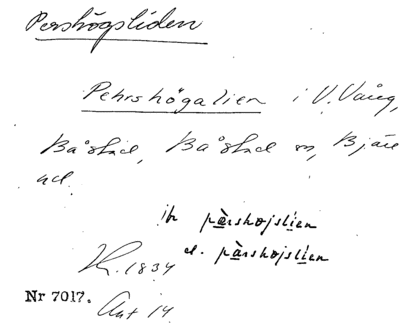 Pershögsliden
Pehrshögalien i V. Vång,
Båstad, Båstad sn, Bjäre
hd.
ib pärshøjslien
el. pårshøjslien
Lk. 1834
Nr 7017.
Akt 14